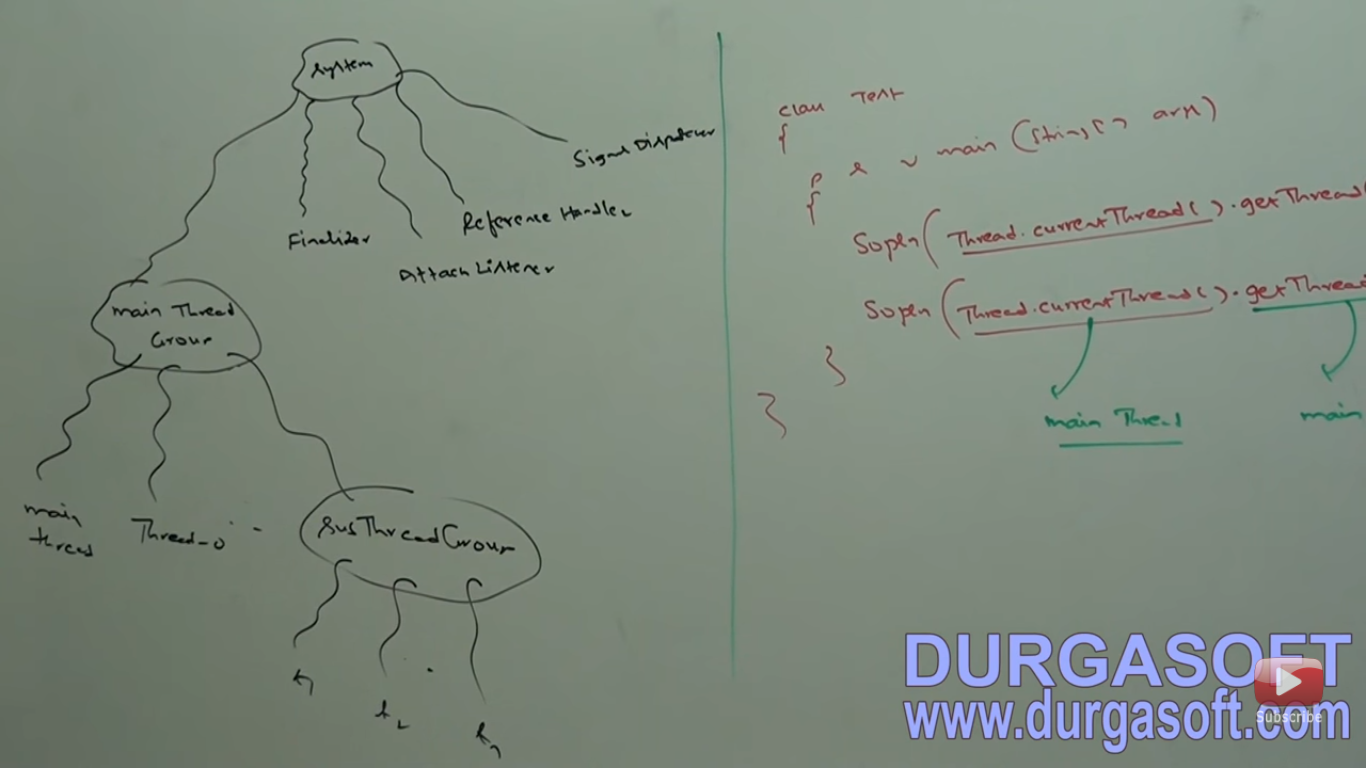 System
Signal Dispatcher
Reference Handler
Finalizer
Attach Listener
main Thread
Group
main
thread
Thread-0
SubThreadGroup
t1
t2
class Test
{
p s v main (String[] args)
{
Sopln(Thread.currentThread().getThread
Sopln(Thread.currentThread().getThread
}
}
main Thread
main
DURGASOFT
www.durgasoft.com
Subscribe